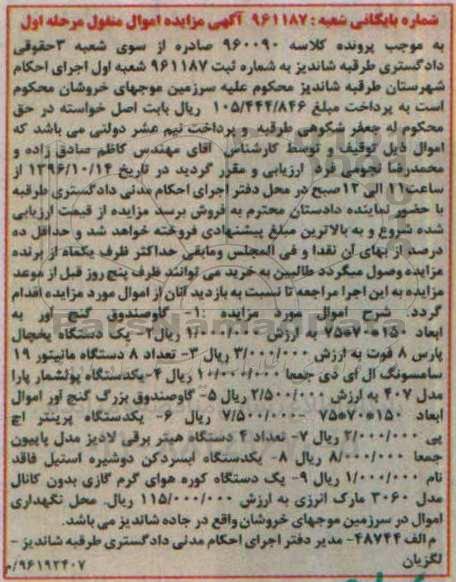 شماره بایگانی شعبه : ۹۶۱۱۸۷ آگهی مزایده اموال منقول مرحله اول
به موجب پرونده کلاسه ۹۶۰۰۹۰ صادره از سوی شعبه ۳حقوقی
دادگستری طرقبه شاندیز به شماره ثبت ۹۶۱۱۸۷ شعبه اول اجرای احکام
شهرستان طرقبه شاندیز محکوم علیه سرزمین موجهای خروشان محکوم
است به پرداخت مبلغ ۱۰۵/۴۴۴/۸۴۶ ریال بابت اصل خواسته در حق
محکوم له جعفر شکوهی طرقبه و پرداخت نیم عشر دولتی می باشد که
اموال ذیل توقیف و توسط کارشناس آقای مهندس کاظم صادق زاده و
محمدرضا نجومی فرد ارزیابی و مقرر گردید در تاریخ ۱۳۹۶/۱۰/۱۴ از
ساعت۱۱ الی ۱۲صبح در محل دفتر اجرای احکام مدنی دادگستری طرقبه
با حضور نماینده دادستان محترم به فروش برسد مزایده از قیمت ارزیابی
شده شروع و به بالاترین مبلغ پیشنهادی فروخته خواهد شد و حداقل ده
درصد از بهای آن نقدا و فی المجلس ومابقی حداکثر ظرف یکماه از برنده
مزایده وصول میگردد طالبین به خرید می توانند ظرف پنج روز قبل از موعد
مزایده به این اجرا مراجعه تا نسبت به بازدید آنان از اموال مورد مزایده اقدام
گردد. شرح اموال مورد مزایده :۱- گاوصندوق گنج آور به
ابعاد ۱۵۰*۷۰*۷۵ به ارزش ریال۲- یک دستگاه یخچال
پارس ۸ فوت به ارزش ۳/۰۰۰/۰۰۰ ریال ۳- تعداد ۸ دستگاه مانیتور ۱۹
سامسونگ ال ای دی جمعا ۱۰/۰۰۰/۰۰۰ ریال ۴-یکدستگاه پولشمار پارا
مدل ۴۰۷ به ارزش ۲/۵۰۰/۰۰۰ ریال ۵- گاوصندوق بزرگ گنج آور اموال
ابعاد ۱۵۰*۷۰*۷۵ -۷/۵۰۰/۰۰۰ ریال ۶- یکدستگاه پرینتر اچ
پی ۲/۰۰۰/۰۰۰ ریال ۷- تعداد ۴ دستگاه هیتر برقی لادیز مدل پاپیون
جمعا ۸/۰۰۰/۰۰۰ ریال ۸- یکدستگاه آبسردکن دوشیره استیل فاقد
نام ۱/۰۰۰/۰۰۰ ریال ۹- یک دستگاه کوره هوای گرم گازی بدون کانال
مدل ۳۰۶۰ مارک انرژی به ارزش ۱۱۵/۰۰۰/۰۰۰ ریال. محل نگهداری
اموال در سرزمین موجهای خروشان واقع در جاده شاندیز می باشد.
م الف ۴۸۷۴۴- مدیر دفتر اجرای احکام مدنی دادگستری طرقبه شاندیز -
لگزیان ۹۶۱۹۲۴۰۷/م